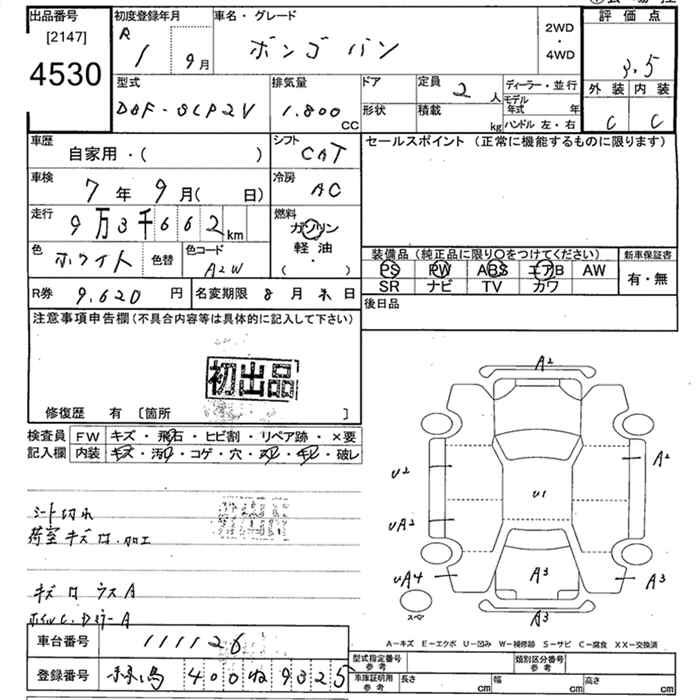 出品番号
[2147]
4530
初度登録年月
R 1 9月
車名・グレード
ボンゴ バン
2WD
・
4WD
評価点
3.5
外装 内装
C C
型式
DBF-SLP2V
排気量
1.800 CC
ドア
形状
定員 2 人
積載 kg
ディーラー・並行
モデル年式 年
ハンドル 左・右
車歴
自家用・( )
シフト
CAT
車検
7年9月( 日)
冷房
AC
走行
9万3千662km
燃料
ガソリン
軽油
・
( )
色
ホワイト
色替
色コード
A2W
R券
9.620円
名変期限 8月末日
セールスポイント(正常に機能するものに限ります)
装備品(純正品に限り○をつけてください)
PS PW ABS エアB AW
SR ナビ TV カワ
新車保証書
有・無
後日品
注意事項申告欄(不具合内容等は具体的に記入して下さい)
初出品
修復歴 有 [箇所 ]
検査員
記入欄
FW キズ・飛石・ヒビ割・リペア跡・×要
内装 キズ・汚れ・コゲ・穴・スレ・キレ・破レ
シート切れ
荷室キズ ロ.加工
キズ ロ ウス A
A2
A2
U2
U1
UA2
UA4
A3
A3
A3
スペア
A-キズ E-エクボ U-凹み W-補修跡 S-サビ C-腐食 XX-交換済
車台番号
111126
登録番号
400 ね 9325
型式指定番号
参考
類別区分番号
参考
車庫証明用
参考
長さ cm
幅 cm
高さ cm